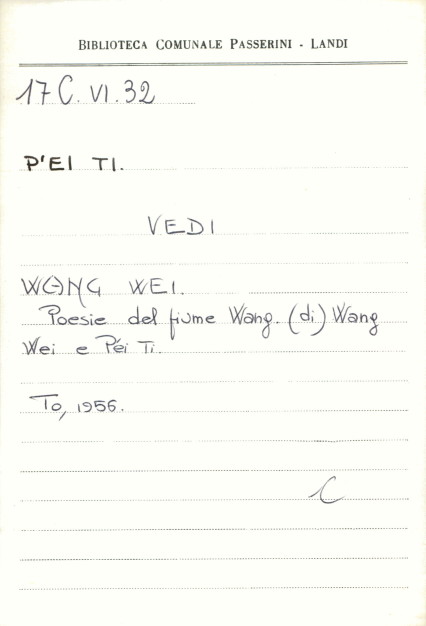 BIBLIOTECA COMUNALE PASSERINI - LANDI
17 C. VI. 32
P'EI TI.
VEDI
WANG WEI.
Poesie del fiume Wang. (di) Wang
Wei e P'ei Ti.
To, 1956.
C